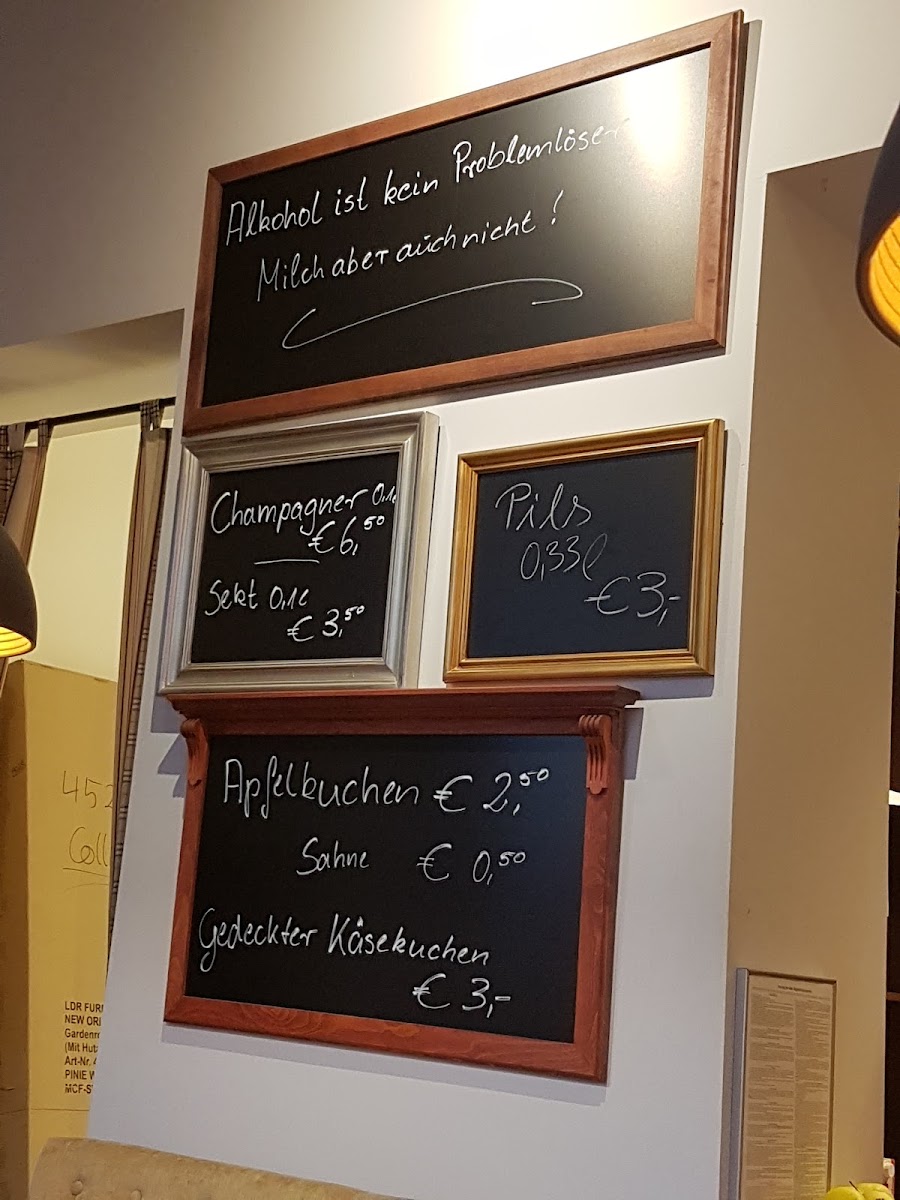 Alkohol ist kein Problemlöser
Milch aber auch nicht !
Champagner 0,1l
€ 6,50
Sekt 0,1l
€ 3,50
Pils
0,33l
€ 3,-
Apfelkuchen € 2,50
Sahne € 0,50
Gedeckter Käsekuchen
€ 3,-
452
Coll
LDR FUR
NEW ORI
Gardenro
(Mit Hutz
Art-Nr. 4
PINIE W
MCF-S